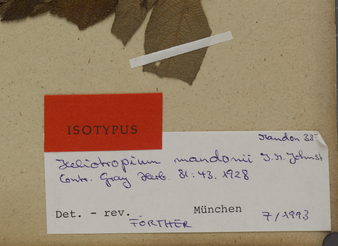 ISOTYPUS
Mandon 385
Heliotropium mandonii I.M. Johnst
Contr. Gray Herb. 81: 43. 1928
Det. - rev. München
FÖRTHER 7/1993